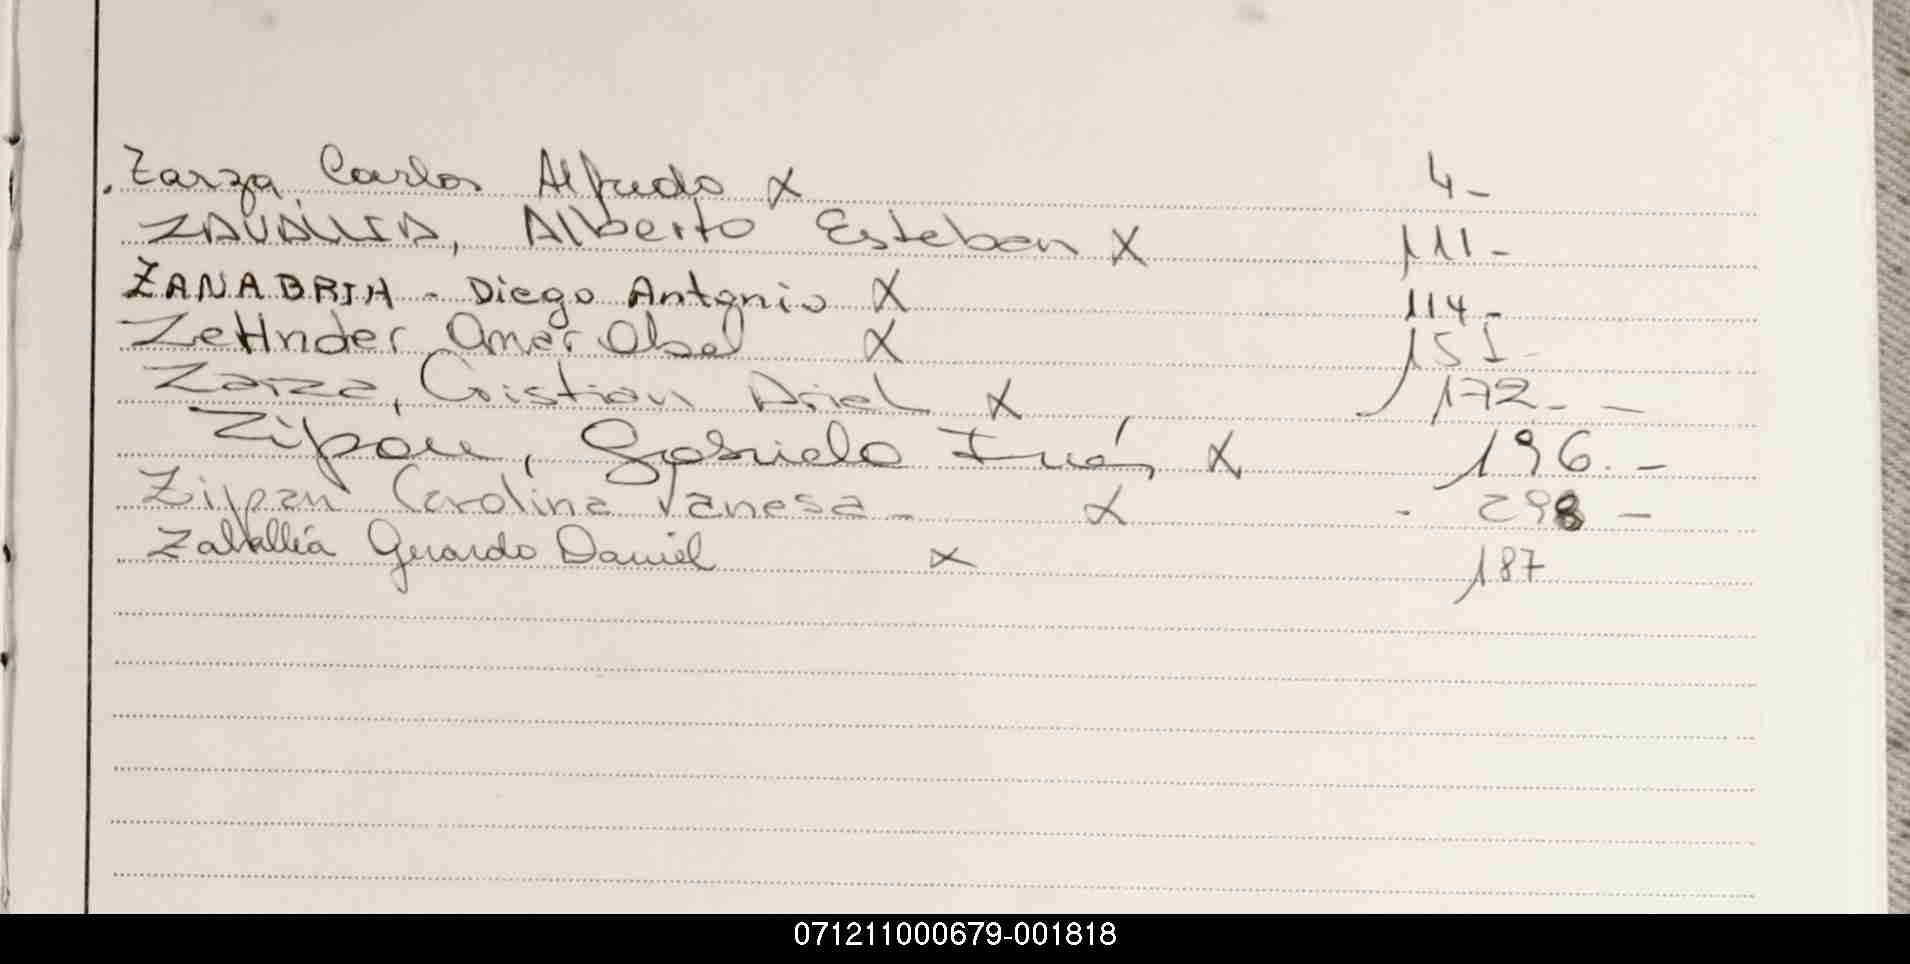 . Zarza Carlos Alfredo X 4 -
ZAVALLIA, Alberto Esteban X 111 -
ZANABRIA - Diego Antonio X 114 -
ZeHnder Omar Obel X 151 -
Zarza, Cristian Ariel X 172 - -
Zipán, Gabriela Inés X 196. -
Zipan Carolina Vanesa - X - 298 -
Zaballía Gerardo Daniel X 187
071211000679-001818